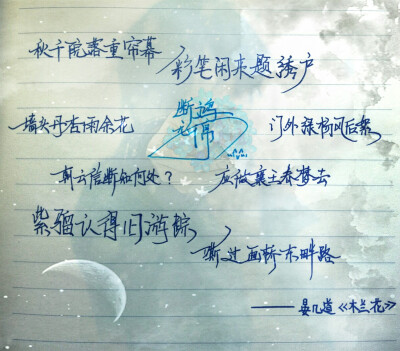 秋千院落重帘幕
彩笔闲来题绣户
断鸿
墙头丹杏雨余花
门外绿杨风后絮
朝云信断知何处？
应做襄王春梦去
紫骝认得旧游踪
嘶过画桥东畔路
——晏几道《木兰花》